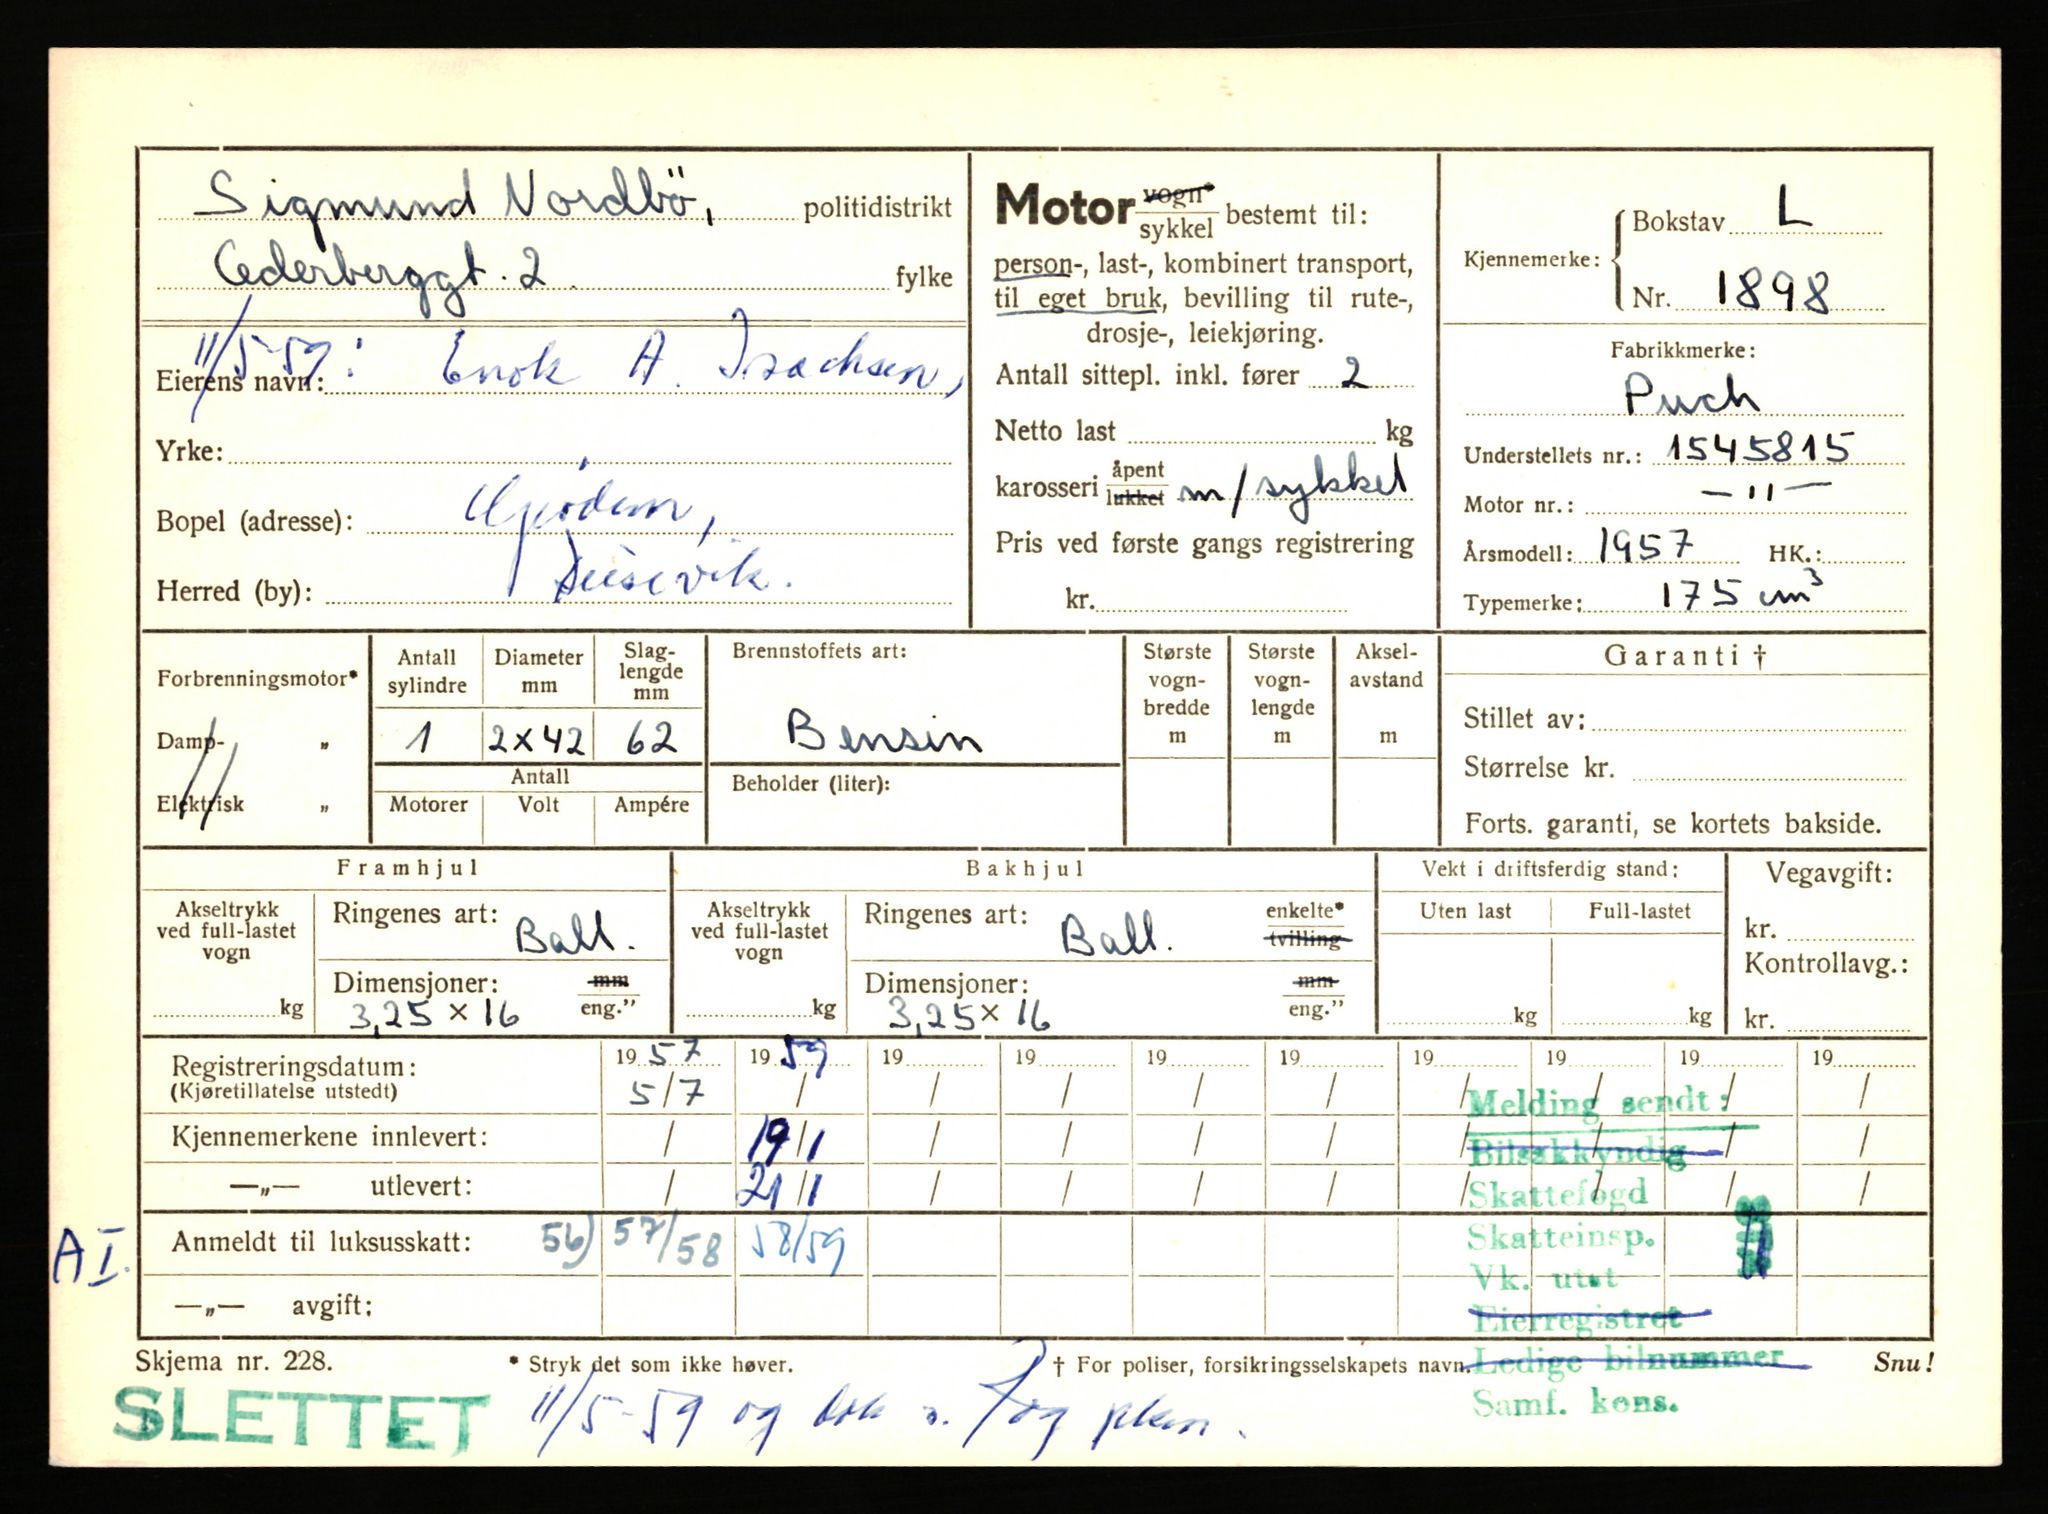 Sigmund Nordbö, politidistrikt
Cederberggt. 2 fylke
11/5-59: Enok A. Isachsen,
Eierens navn:
Yrke:
Bopel (adresse):
Herred (by):
Motor vogn* sykkel bestemt til:
person-, last-, kombinert transport,
til eget bruk, bevilling til rute-,
drosje-, leiekjøring.
Antall sittepl. inkl. fører 2
Netto last kg
karosseri åpent lukket m/sykkel
Pris ved første gangs registrering
kr.
Kjennemerke: Bokstav L
Nr. 1898
Fabrikkmerke:
Puch
Understellets nr.: 1545815
Motor nr.: — " —
Årsmodell: 1957 HK.:
Typemerke: 175 cm³
Forbrenningsmotor*
Damp- „
Elektrisk „
Antall sylindre
1
Diameter mm
2x42
Slag-lengde mm
62
Antall
Motorer Volt Ampére
Brennstoffets art:
Bensin
Beholder (liter):
Største vogn-bredde m
Største vogn-lengde m
Aksel-avstand m
Garanti †
Stillet av:
Størrelse kr.
Forts. garanti, se kortets bakside.
Framhjul
Akseltrykk ved full-lastet vogn
kg
Ringenes art: Ball.
Dimensjoner: mm eng."
3,25 x 16
Bakhjul
Akseltrykk ved full-lastet vogn
kg
Ringenes art: Ball. enkelte* tvilling
Dimensjoner: mm eng."
3,25 x 16
Vekt i driftsferdig stand:
Uten last Full-lastet
kg kg
Vegavgift:
kr.
Kontrollavg.:
kr.
Registreringsdatum: 19 57 19 59 19 19 19 19 19 19 19 19
(Kjøretillatelse utstedt) 5/7 / / / / / / / / /
Kjennemerkene innlevert: / 19/1 / / / / / / / /
—„— utlevert: / 21/1 / / / / / / / /
A I. Anmeldt til luksusskatt: 56) 57/58 58/59
—„— avgift:
Melding sendt:
Bilsakkyndig
Skattefogd
Skatteinsp.
Vk. utst
Eierregistret
Ledige bilnummer
Samf. kons.
Skjema nr. 228. * Stryk det som ikke høver. † For poliser, forsikringsselskapets navn. Snu!
SLETTET 11/5-59 og